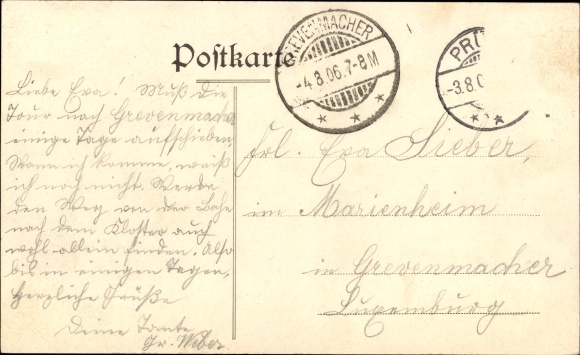 Postkarte
GREVENMACHER
-4.8.06.7-8M
PRÜ
-3.8.0
Liebe Eva! Muß die
Tour nach Grevenmach.
einige Tage aufschieben.
Wann ich komme, weiß
ich noch nicht. Werde
den Weg von der Bahn
nach dem Kloster auch
wohl allein finden. Also
bis in einigen Tagen,
herzliche Grüße
Deine Tante
Gr. Weber.
Frl. Eva Sieber,
im Marienheim
in Grevenmacher
Luxemburg